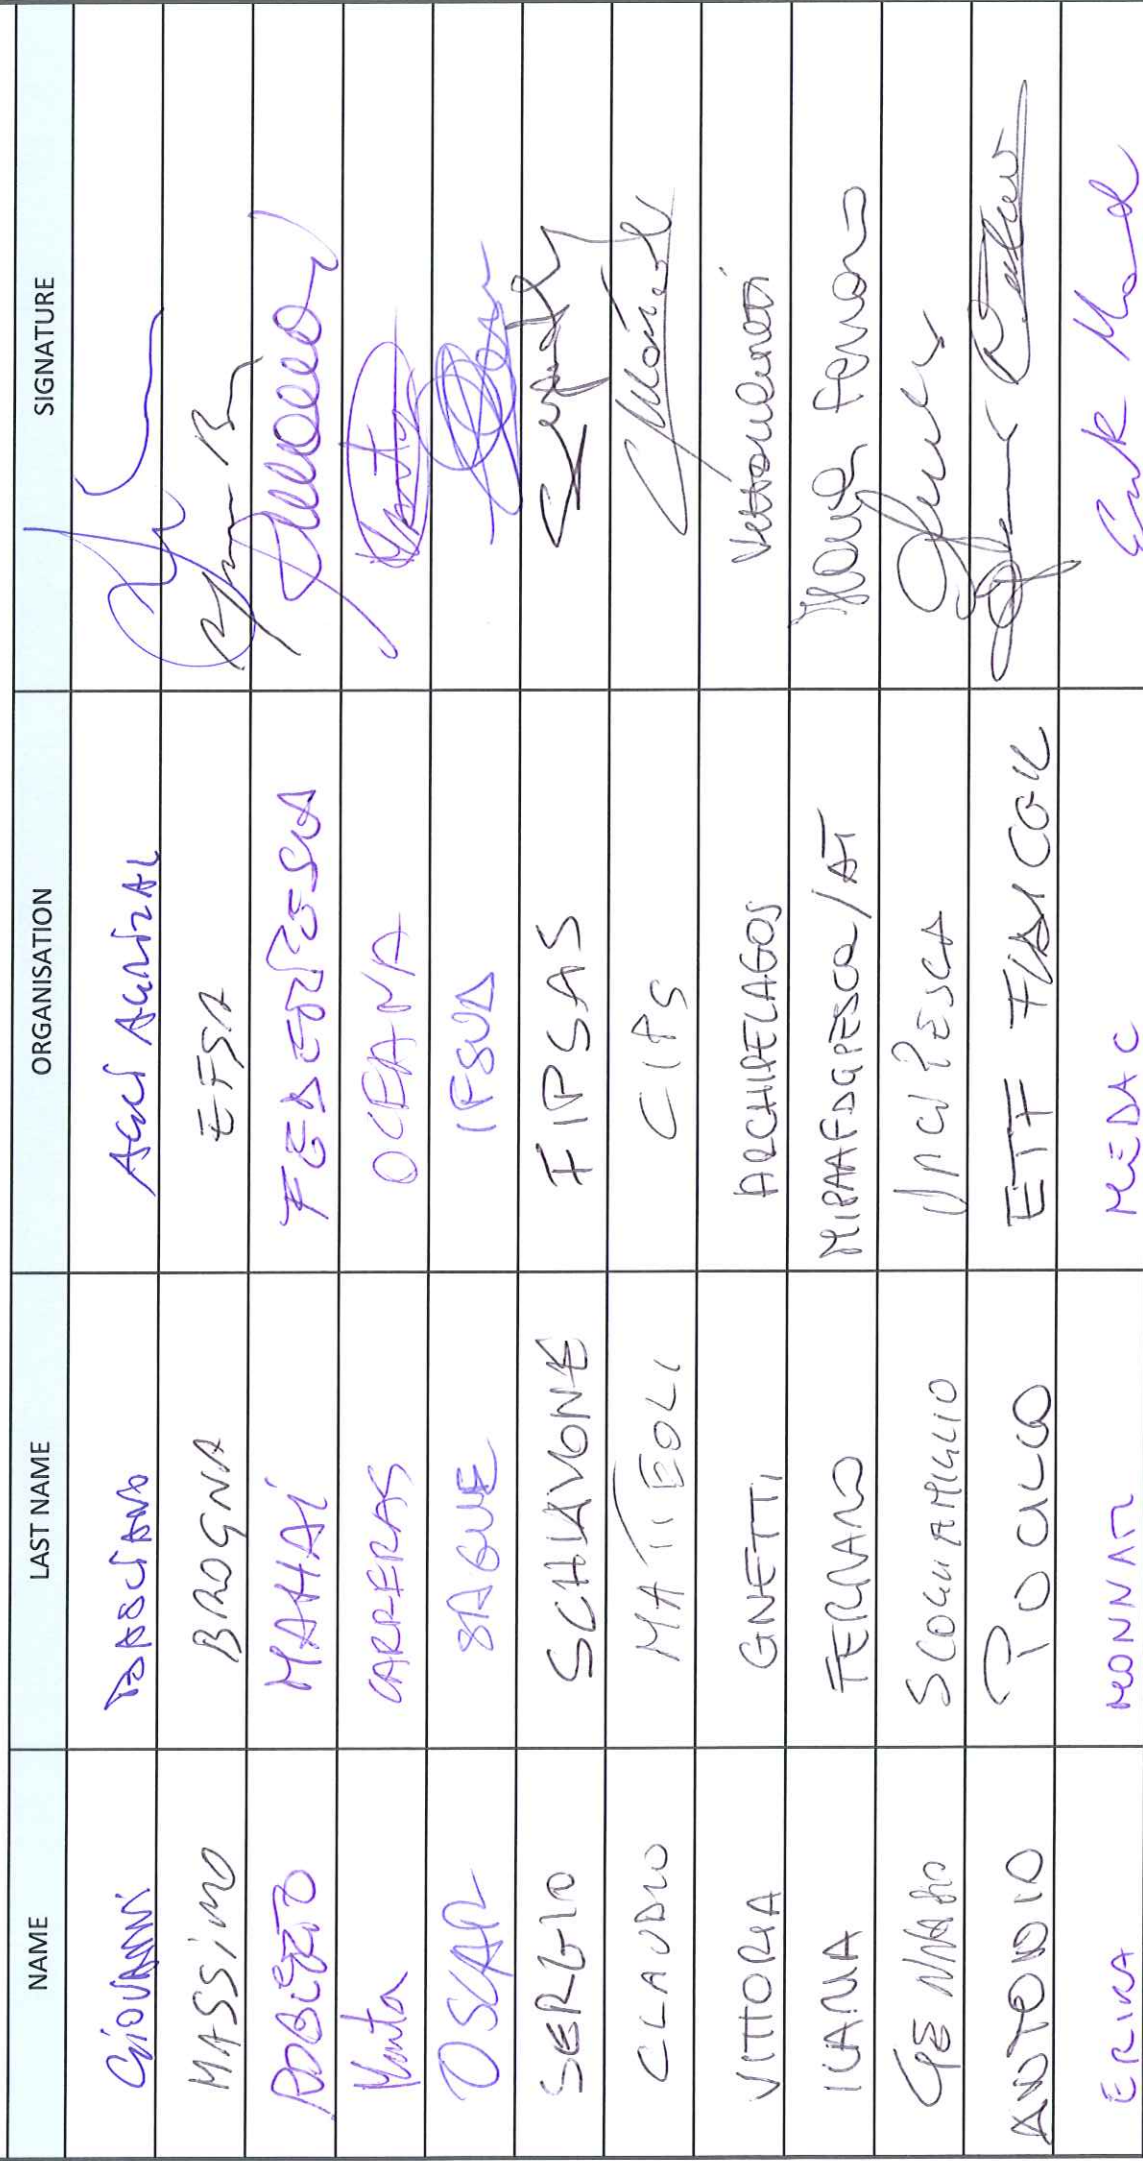 NAME LAST NAME ORGANISATION SIGNATURE
GIOVANNI BASCIANO AGCI AGRITAL
MASSIMO BROGNA EFSA
ROBERTO MAHAI FEDERPESCA
Marta CARRERAS OCEANA
OSCAR SAGUE IFSUA
SERGIO SCHIAVONE FIPSAS
CLAUDIO MATTEOLI CIPS
VITTORIA GNETTI ARCHIPELAGOS
ILARIA FERRARO MIPAAFDGPESCA/AT Ilaria Ferraro
GENNARO SCOGNAMIGLIO UNCI PESCA
ANTONIO PUCILLO ETF FLAI CGIL
ERIKA MONNATI MEDAC